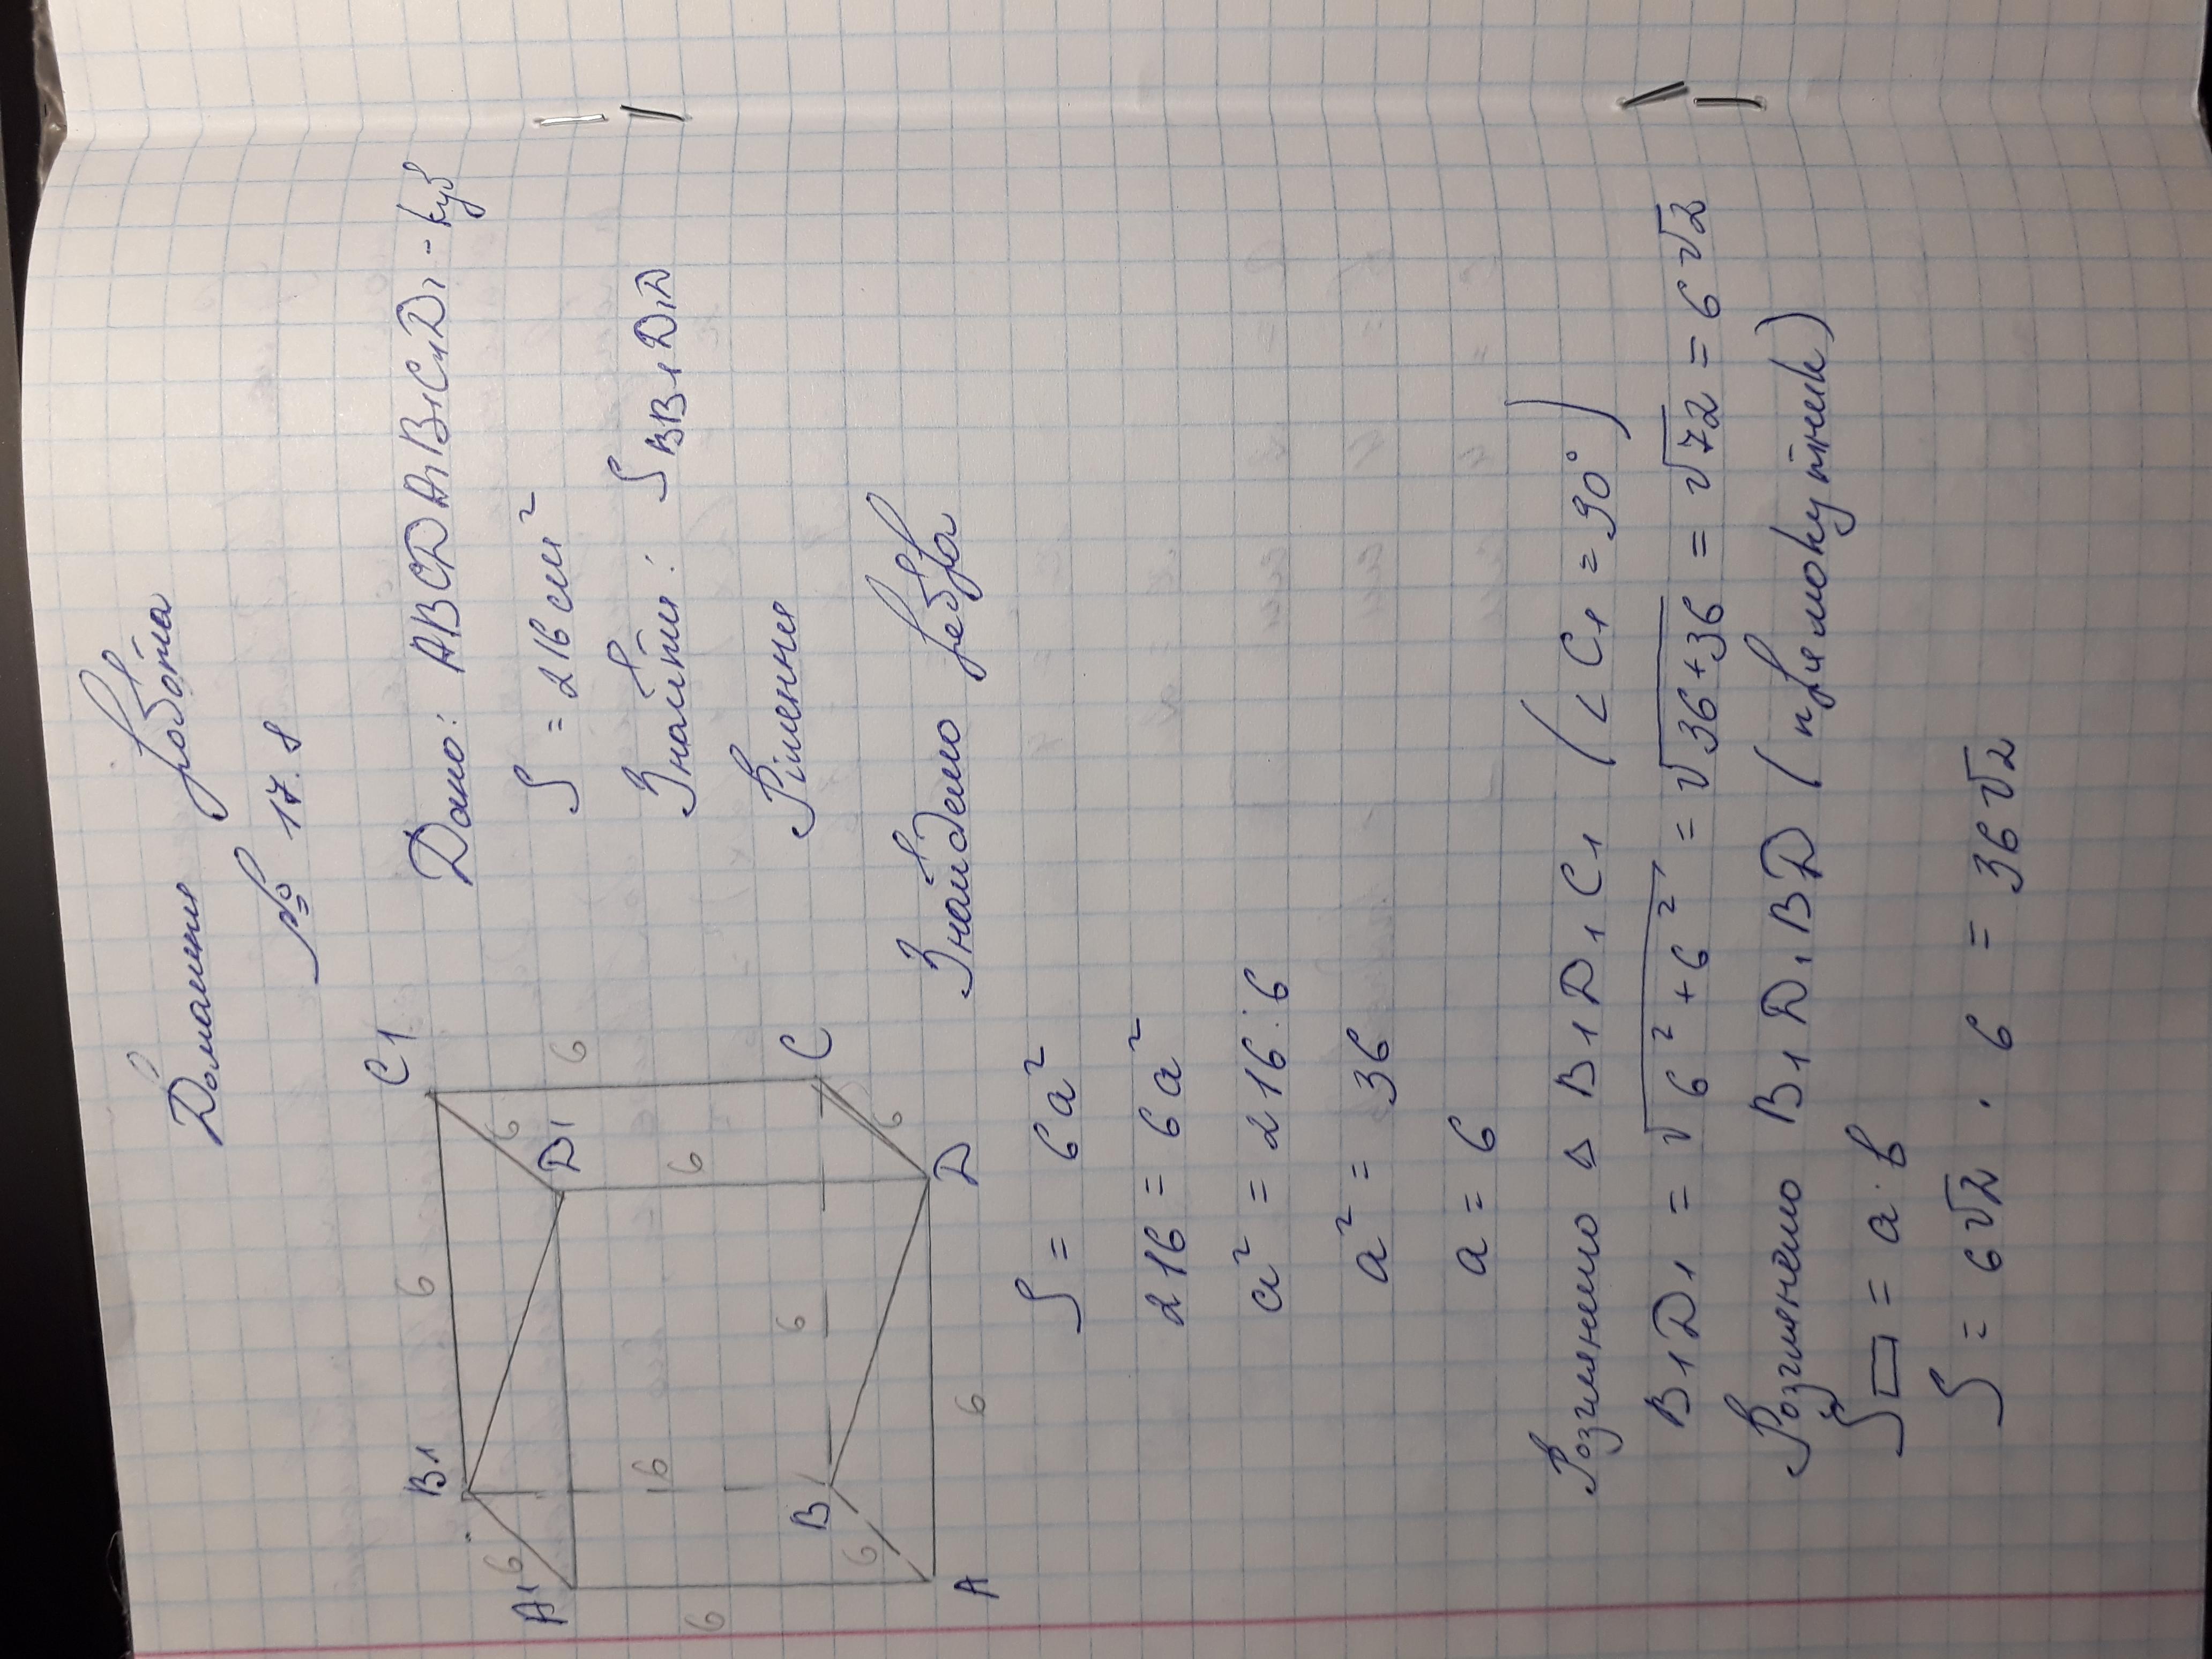 Домашня робота
№ 17.8
Дано: ABCDA1B1C1D1 - куб
S = 216 см²
Знайти: S BB1D1D
Рішення
Знайдемо ребра
B1
6
C1
6
6
A1
D1
6
6
6
6
B
6
C
6
6
A
6
D
S = 6a²
216 = 6a²
a² = 216 : 6
a² = 36
a = 6
Розглянемо △ B1D1C1 (∠C1 = 90°)
B1D1 = √6² + 6² = √36+36 = √72 = 6√2
Розглянемо B1D1BD (прямокутник)
S▭ = a · b
S = 6√2 · 6 = 36√2